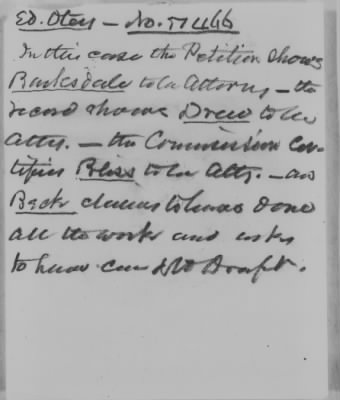 Ed. Otey — No. 57466
In this case the Petition shows
Barksdale to be Attorney — the
record shows Drew to be
Atty. — the Commission Cer-
tifies Bliss to be Atty. — and
Beck claims to have done
all the work and asks
to have